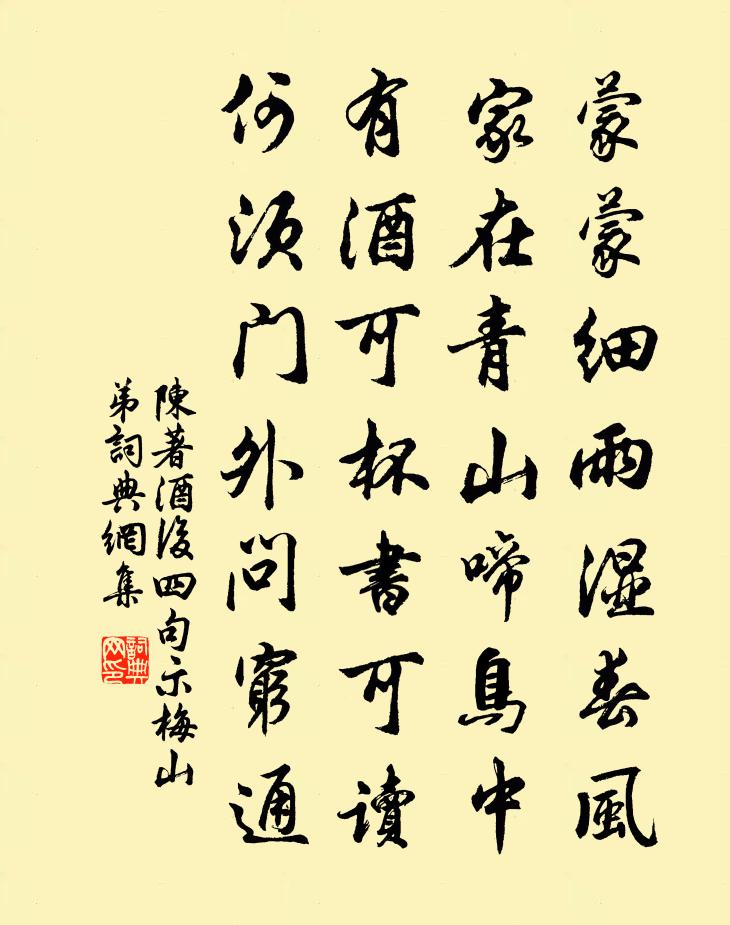 蒙蒙細雨濕春風
家在青山啼鳥中
有酒可杯書可讀
何須門外問窮通
陳著酒後四句示梅山
弟詞典網集
詞典網印